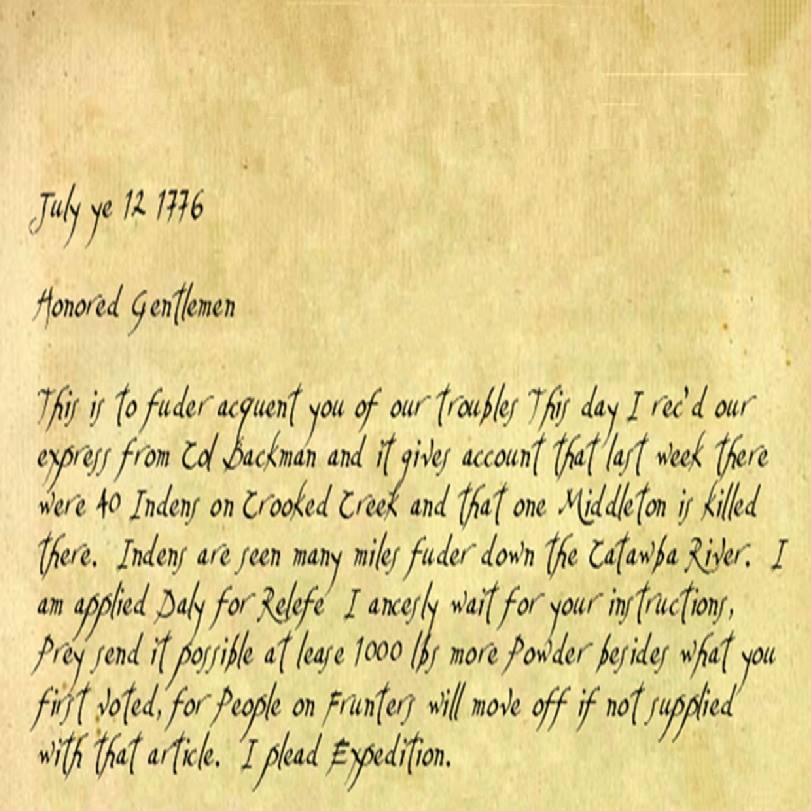 July ye 12 1776
Honored Gentlemen
This is to fuder acquent you of our troubles This day I rec'd our
express from Col Backman and it gives account that last week there
were 40 Indens on Crooked Creek and that one Middleton is killed
there. Indens are seen many miles fuder down the Catawba River. I
am applied Daly for Relefe I ancesly wait for your instructions,
Prey send it possible at lease 1000 lbs more Powder besides what you
first voted, for People on Frunters will move off if not supplied
with that article. I plead Expedition.